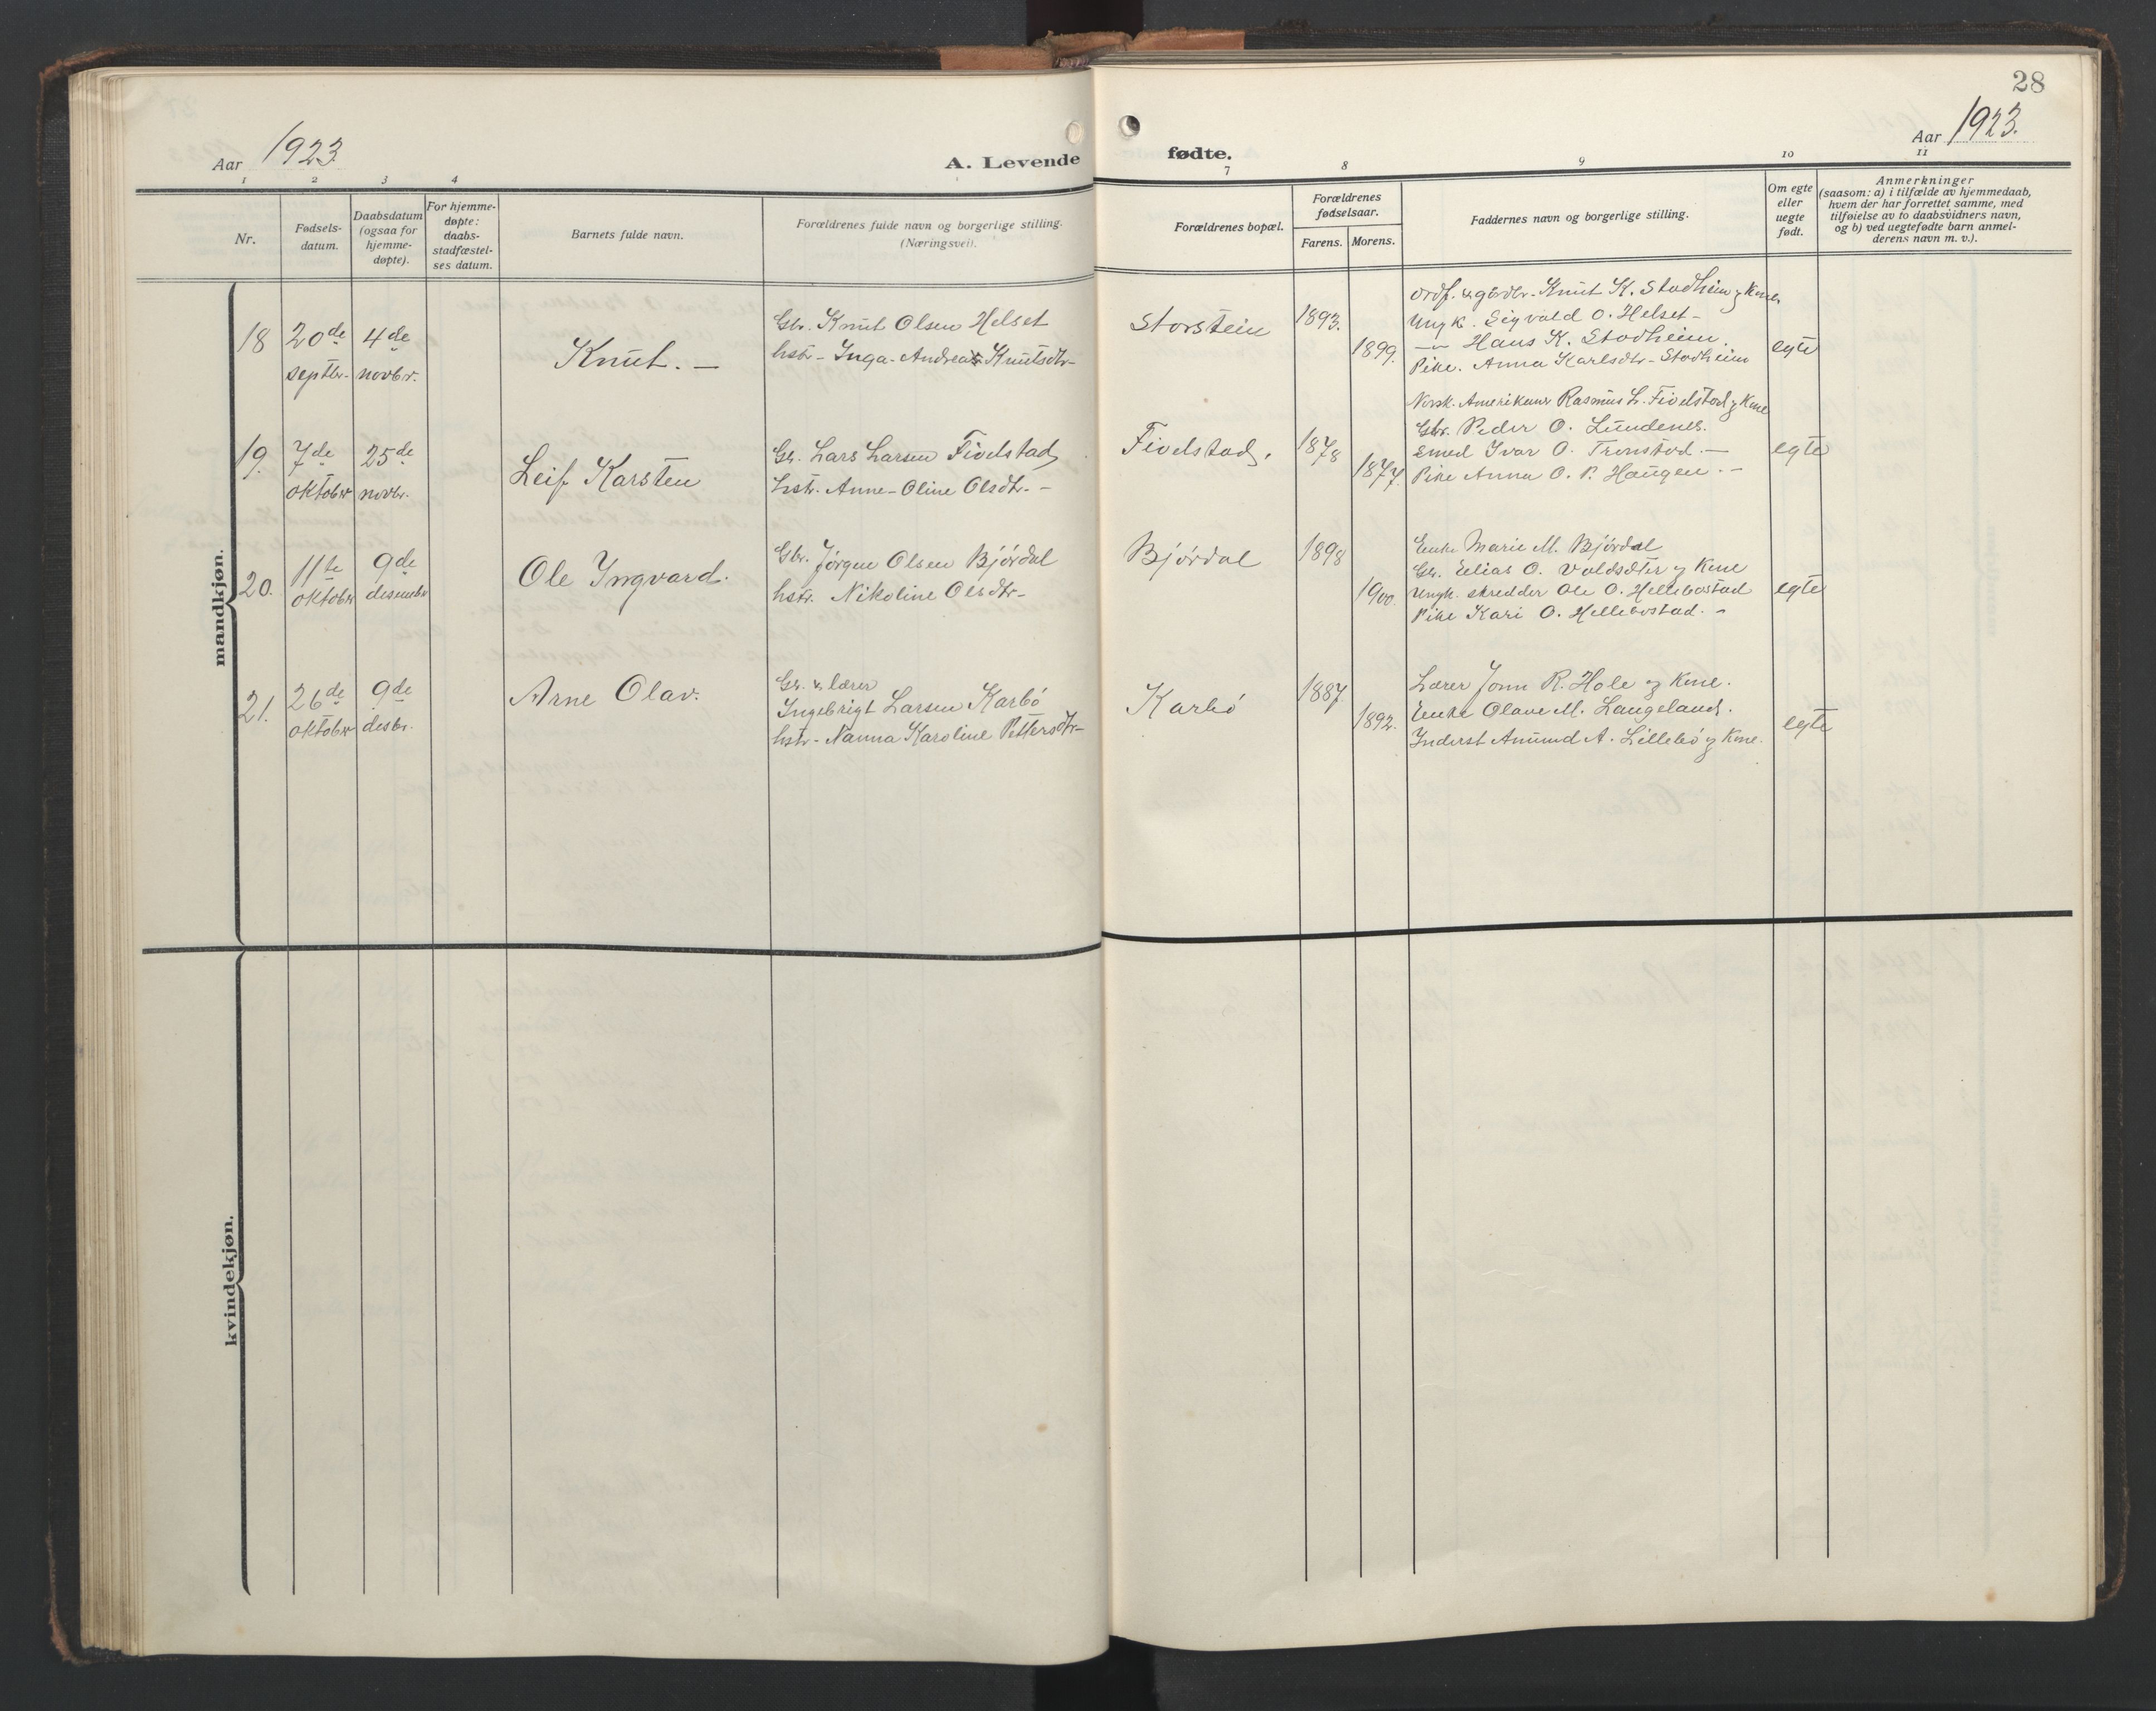 28
Aar 1923.
A. Levende
fødte.
Aar 1923.
1 2 3 4
7 8 9 10 11
Nr.
Fødsels-
datum.
Daabsdatum
(ogsaa for
hjemme-
døpte).
For hjemme-
døpte:
daabs-
stadfæstel-
ses datum.
Barnets fulde navn.
Forældrenes fulde navn og borgerlige stilling.
(Næringsvei).
Forældrenes bopæl.
Forældrenes
fødselsaar.
Farens. Morens.
Faddernes navn og borgerlige stilling.
Om egte
eller
uegte
født.
Anmerkninger
(saasom: a) i tilfælde av hjemmedaab,
hvem der har forrettet samme, med
tilføielse av to daabsvidners navn,
og b) ved uegtefødte barn anmel-
derens navn m. v.).
mandkjøn.
18
20de
septbr.
4de
novbr.
Knut. –
Gbr. Knut Olsen Helset
hstr. Inga-Andrea Knutsdtr–
Storstein
1893.
1899.
Ordf. & gårdbr. Knut K. Stadheim og Kone
Ungk. Sigvald O. Helset–
–"– Hans K. Stadheim.
Pike. Anna Karlsdtr– Stadheim
egte
19.
7de
oktober
25de
novbr.
Leif Karsten
Gbr. Lars Larsen Fivelstad
hstr. Anne-Oline Olsdtr. –
Fivelstad.
1878
1877.
Norsk-Amerikaner Rasmus L. Fivelstad og Kone
Gbr. Peder O. Lundenes.
Smed Ivar O. Tronstad. –
Pike Anna O. P. Haugen. –
egte
20.
11te
oktober
9de
desember
Ole Ingvard.
Gbr. Jørgen Olsen Bjørdal
hstr. Nikoline Olsdtr–
Bjørdal
1898
1900.
Enke Marie M. Bjørdal
Gbr. Elias O. Voldsæter og Kone
Ungk. skredder Ole O. Hellebostad
Pike Kari O. Hellebostad. –
egte
21.
26de
oktober
9de
desbr.
Arne Olav.
Gbr. & lærer
Ingebrigt Larsen Karbø
hstr– Nanna Karoline Pettersdtr–
Karbø
1887.
1892.
Lærer Jonn R. Hole og Kone.
Enke Olave M. Langeland.
Inderst Amund A. Lillebø og Kone.
egte
kvindekjøn.